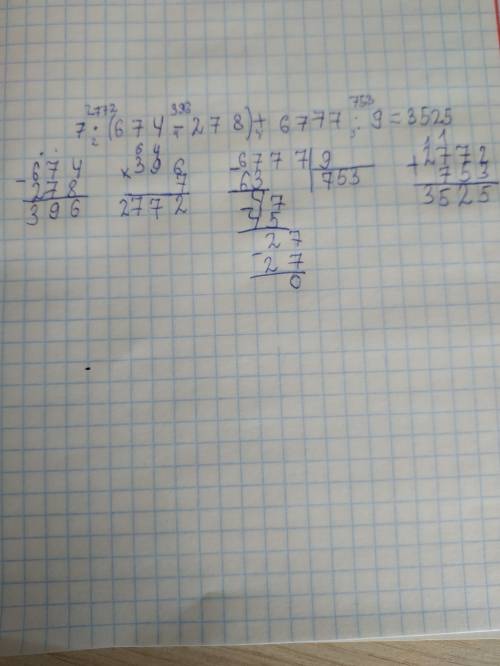 2772 396 753
7 · (674 - 278) + 6777 : 9 = 3525
2 1 4 3
- 674
278
396
64
× 396
7
2772
- 6777 | 9
63 753
- 47
45
- 27
27
0
11
+ 2772
753
3525